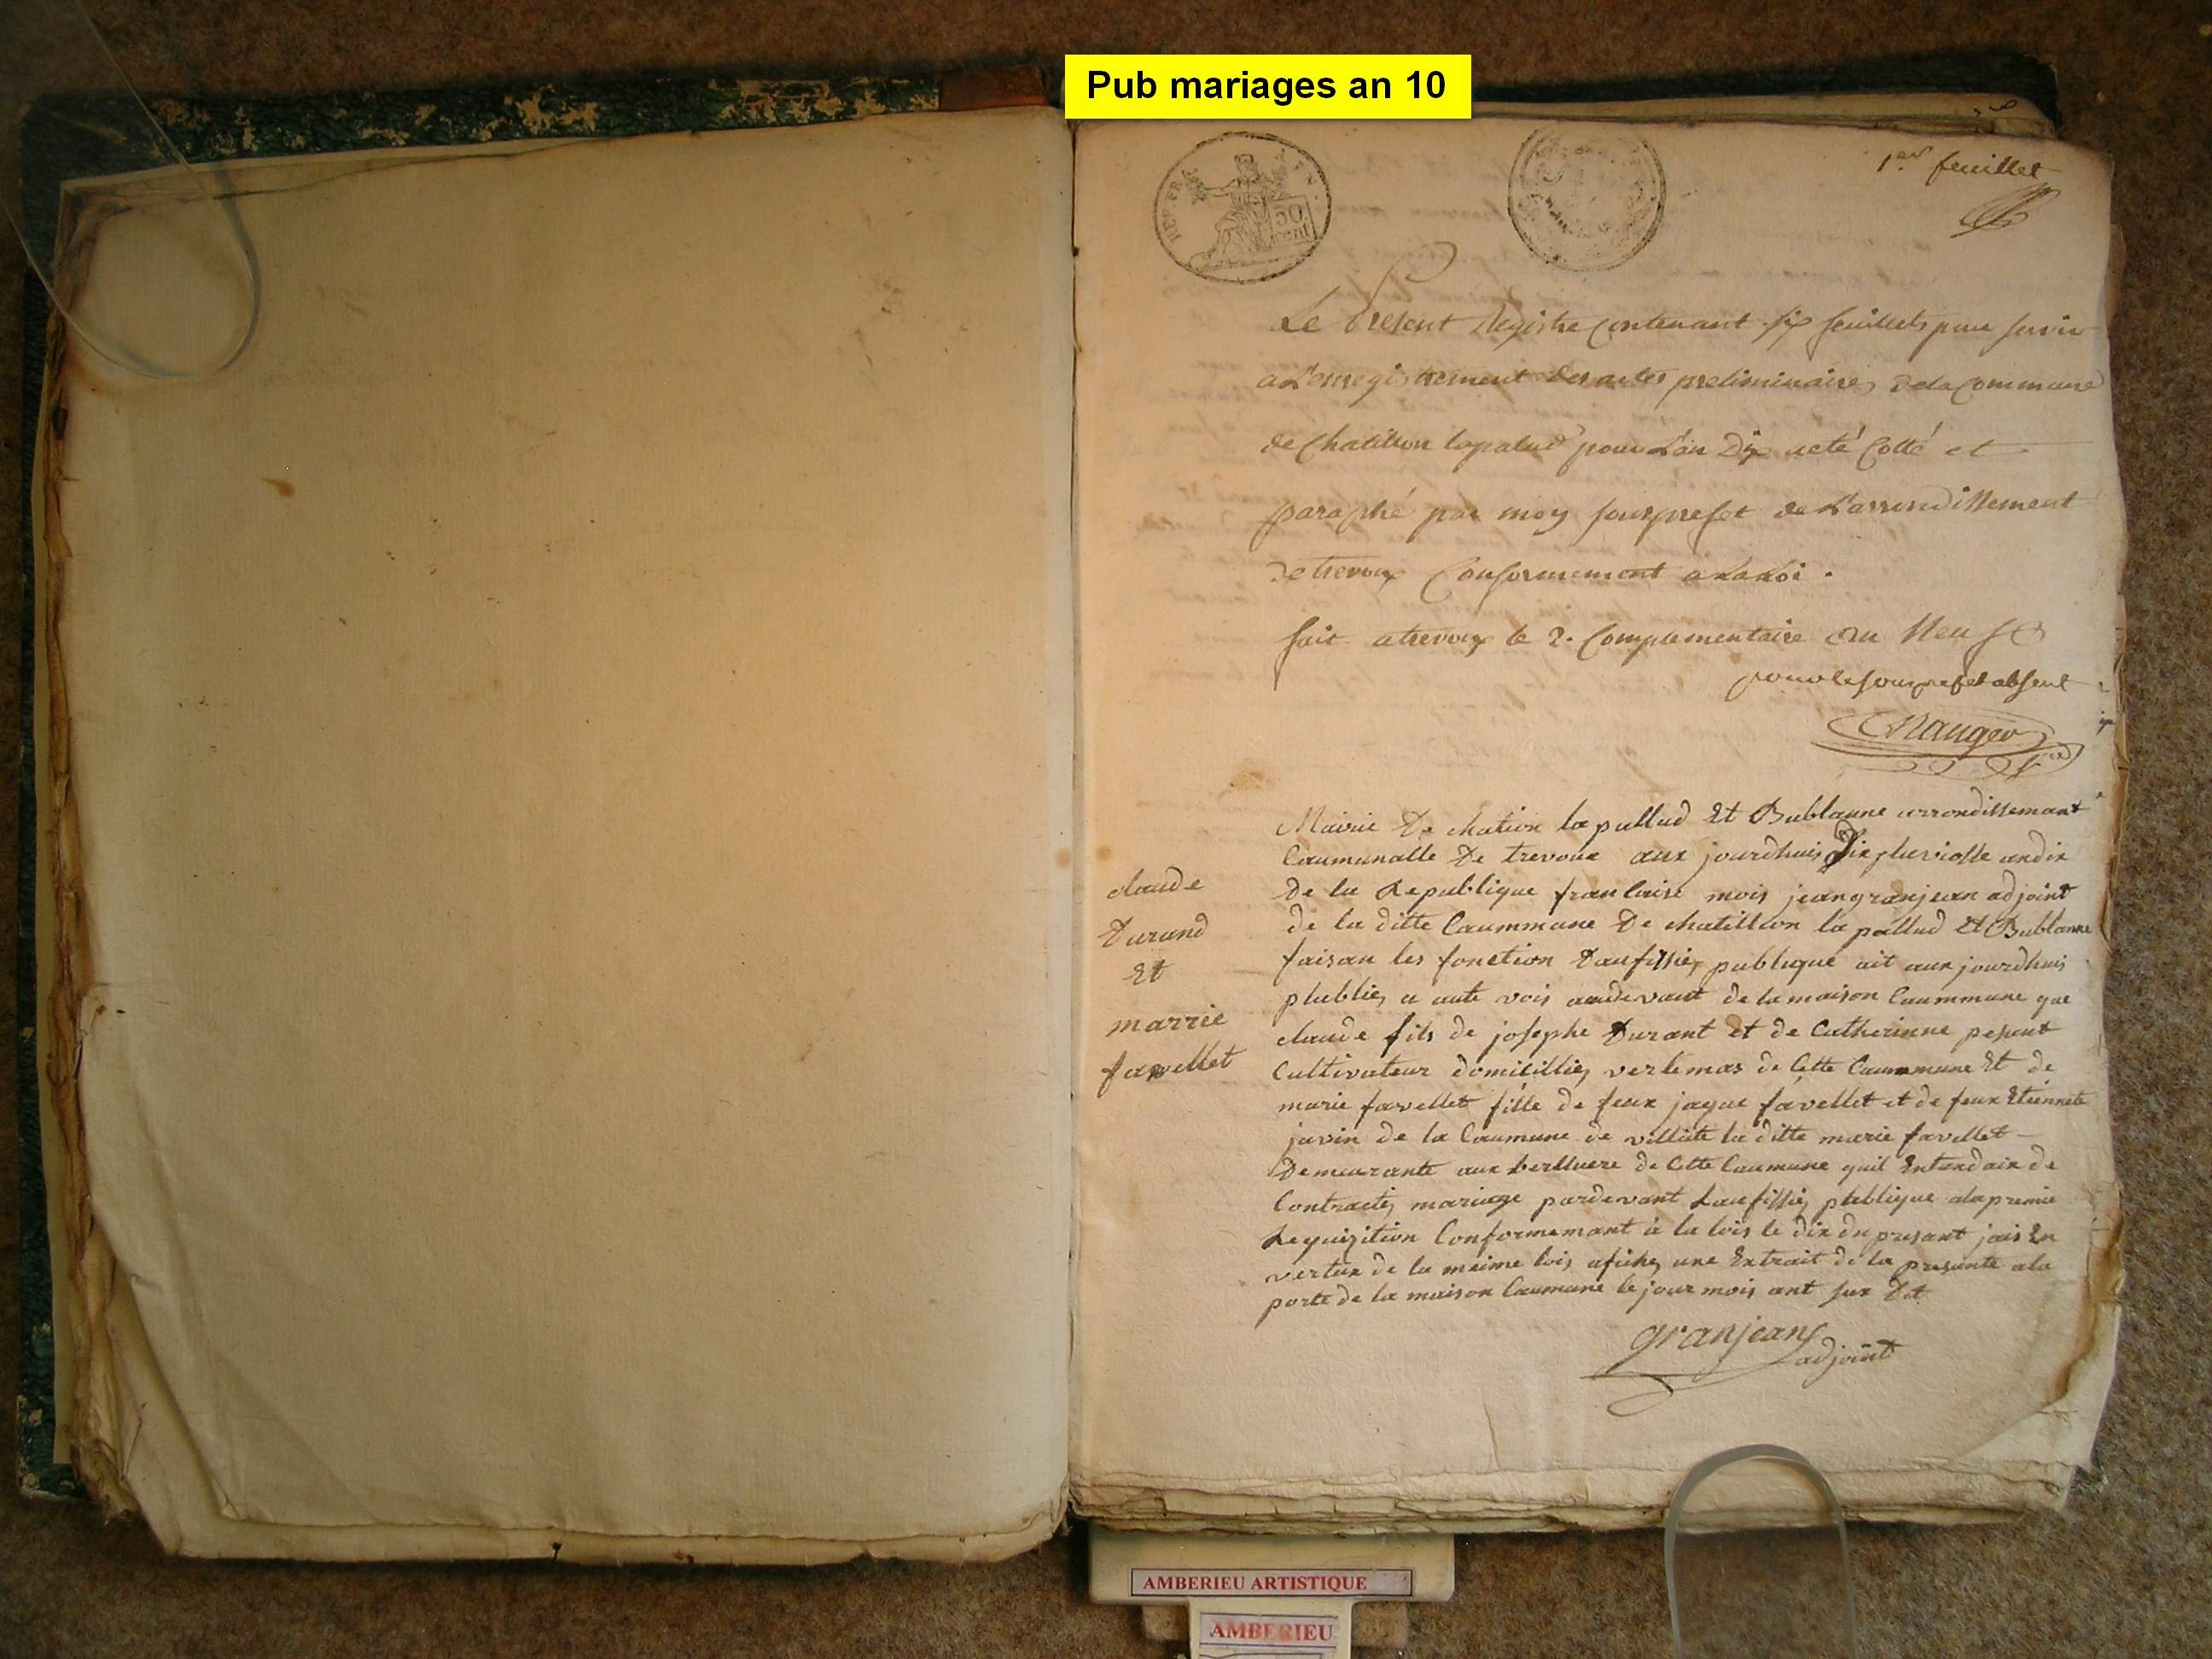 Pub mariages an 10
REP. FRA
50
cent
1er feuillet
Le Present Registre Contenant six feuillets pour servir
a L'enregistrement des actes preliminaires de la Commune
de Chatillon lapalud pour L'an Dix acté Cotté et
paraphé par moy sousprefet de L'arrondissement
de trevoux Conformement a La Loi .
fait a trevoux le 2. Complementaire an Neuf
pour le souprefet absent
Mairie De chation la pallud Et Bublanne arrondissemant
Caumunalle De trevoux aux jourdhuis Dix pluviosse an dix
De la Republique franCaise mois jean granjean adjoint
de la ditte Caummune De chatillon la pallud Et Bublanne
faisan les fonction Daufissier publique ait aux jourdhuis
plublier a aute vois audevant de la maison Caummune que
claude fils de josephe Durant et de Catherinne pesant
Cultivateur domicillier ver le mas de Cette Caummune Et de
marie favellet fille de feux jaque favellet et de feux Etiennete
javin de la Caumune de villiste la ditte marie favellet
Demeurante aux berlluere de Cette Caumune quil Entendair de
Contracter mariage pardevant Laufissier plublique ala premie
Requizition Conformemant à la lois le dix du presant jais En
vertux de la meime lois aficher une Extrait de la presante ala
porte de la maison Caumune le jour mois ant sux Dit
granjean
adjoint
claude
Durand
Et
marrie
favellet
AMBERIEU ARTISTIQUE
AMBERIEU